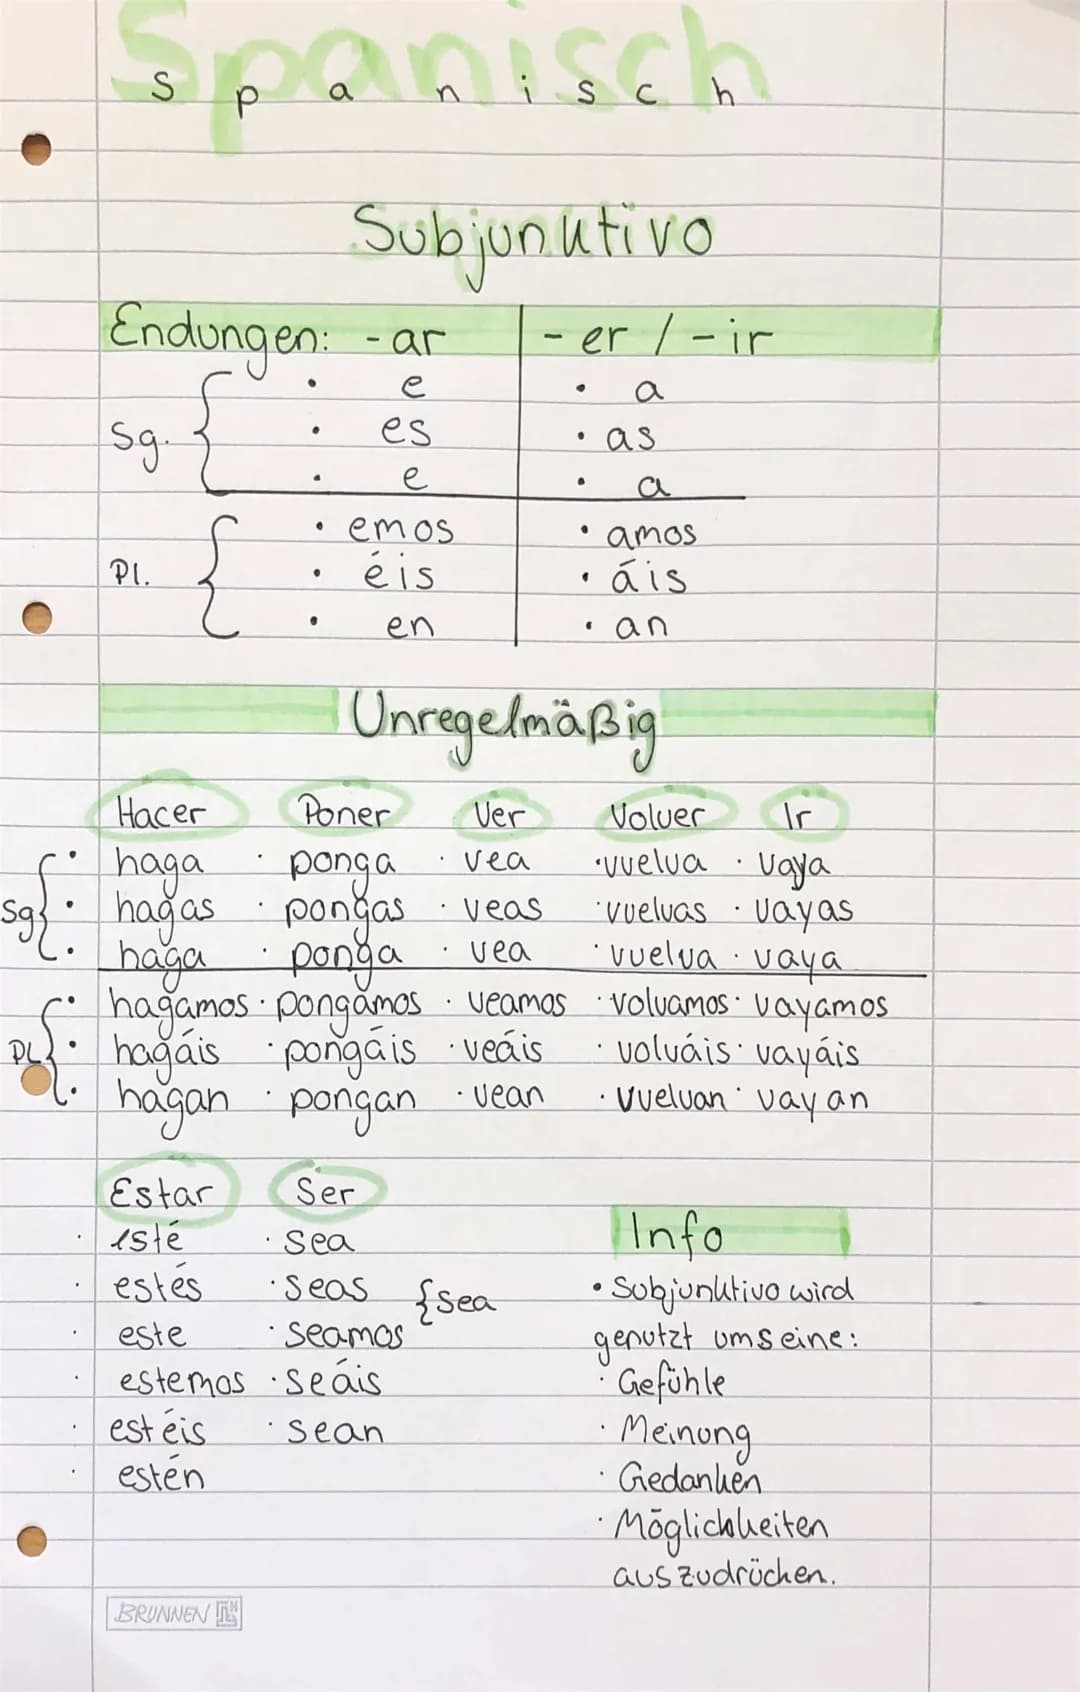 Spanisch
s p a n i s c h
Subjunktivo
Endungen: -ar | -er / -ir
• e • a
Sg. • es • as
• e • a
• emos • amos
Pl. • éis • áis
• en • an
Unregelmäßig
Hacer Poner Ver Volver Ir
• haga • ponga • vea • vuelva • vaya
Sg • hagas • pongas • veas • vuelvas • vayas
• haga • ponga • vea • vuelva • vaya
• hagamos • pongamos • veamos • volvamos • vayamos
Pl • hagáis • pongáis • veáis • volváis • vayáis
• hagan • pongan • vean • vuelvan • vayan
Estar Ser
• esté • sea
• estés • seas {sea
• este • seamos
• estemos • seáis
• estéis • sean
• estén
Info
• Subjunktivo wird
genutzt um seine:
• Gefühle
• Meinung
• Gedanken
• Möglichkeiten
auszudrücken.
BRUNNEN